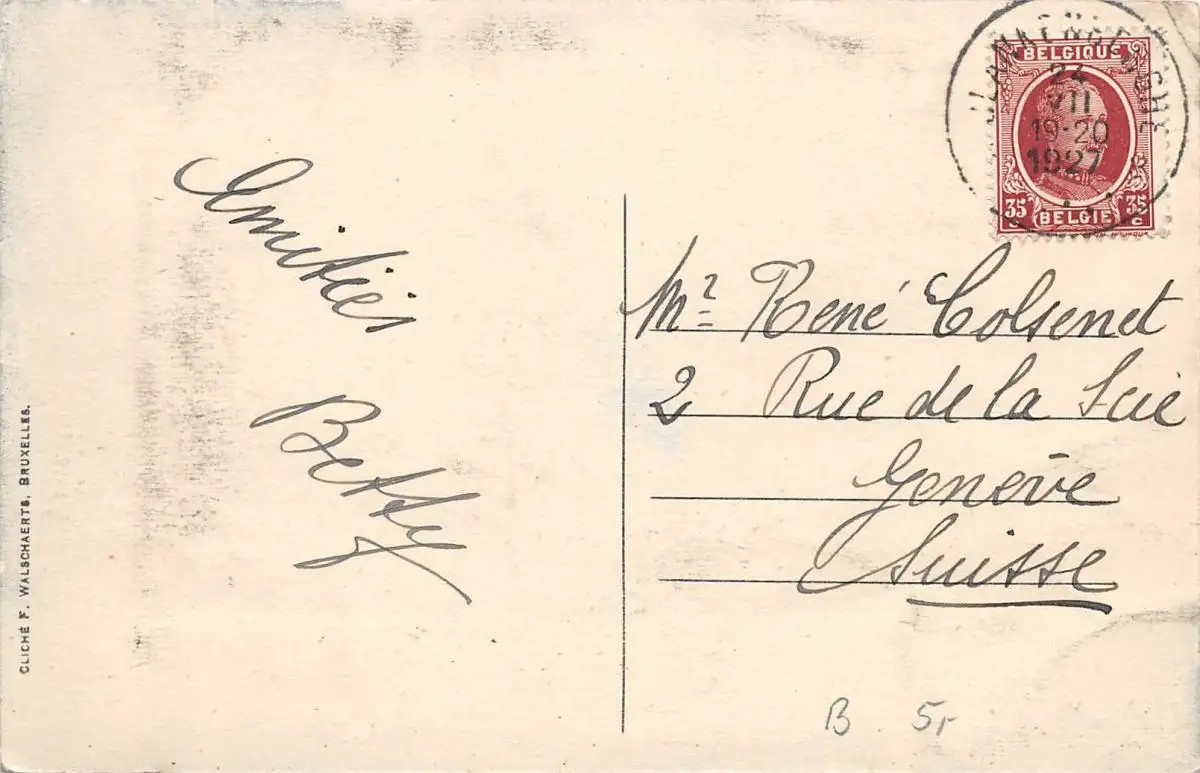 BELGIQUE
24
VII
19-20
1927
35 BELGIE 35
c c
Amitiés
Betty
Mr René Colsenet
2 Rue de la Scie
Genève
Suisse
CLICHÉ F. WALSCHAERTS, BRUXELLES.
B 5,-